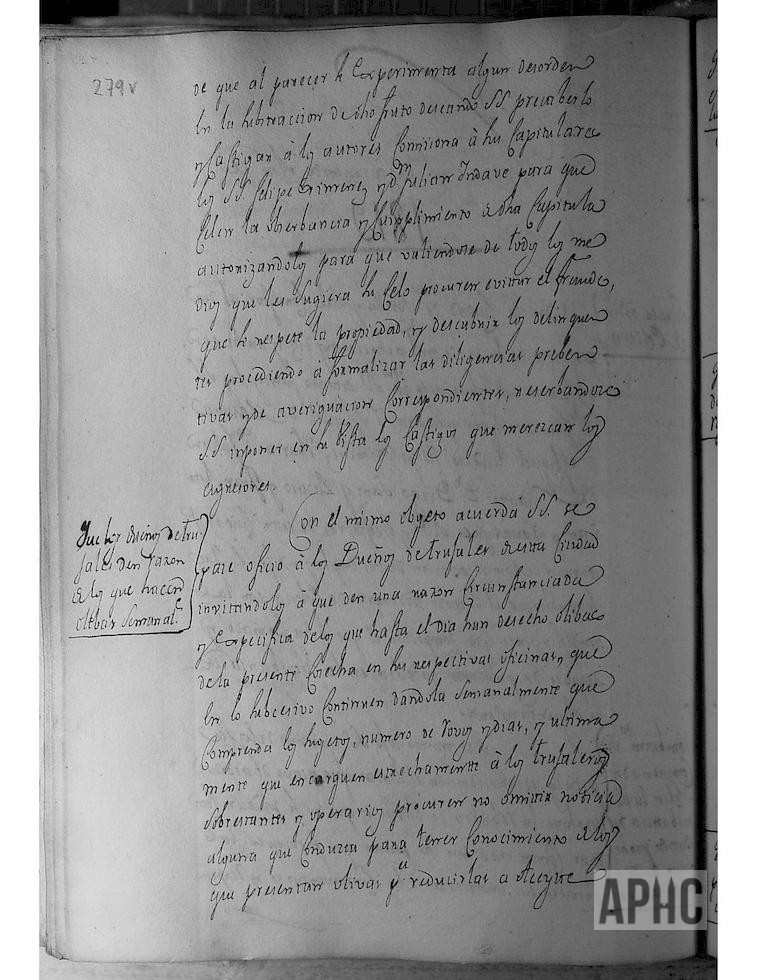 279v
de que al parecer se Experimenta algun desorden
en la substraccion de dho fruto deseando SS. precaberlo
y Castigar à los autores Comisiona à sus Capitulares
los SS. Felipe Ximenez y Dn. Julian Indave para que
Celen la observancia y Cumplimiento de dha Capitula
autorizandolos para que valiendose de todos los me
dios que les sugiera su Celo procuren evitar el fraude,
que se respete la propiedad, y descubrir los delinquen
tes procediendo à formalizar las diligencias preben
tivas y de averiguacion Correspondientes, reserbandose
SS. imponer en su Vista los Castigos que merezcan los
agresores.
Que los dueños de tru
jales den razon
de los que hacen
olibas Semanal.te
Con el mismo obgeto acuerda SS. se
pase oficio à los Dueños de trujales de esta Ciudad
invitandolos à que den una razon Circunstanciada
y Expecifica de los que hasta el dia han desecho olibas
de la presente Cosecha en sus respectivas oficinas, que
en lo subcesivo Continuen dandola semanalmente que
Comprenda los sugetos, numero de Robos y dias, y ultima
mente que encarguen estrechamente à los trujaleros
sobrestantes y operarios procuren no omitir noticia
alguna que Conduzca para tener Conocimiento de los
que presentan olivas p.a reducirlas a Aceyte
APHC